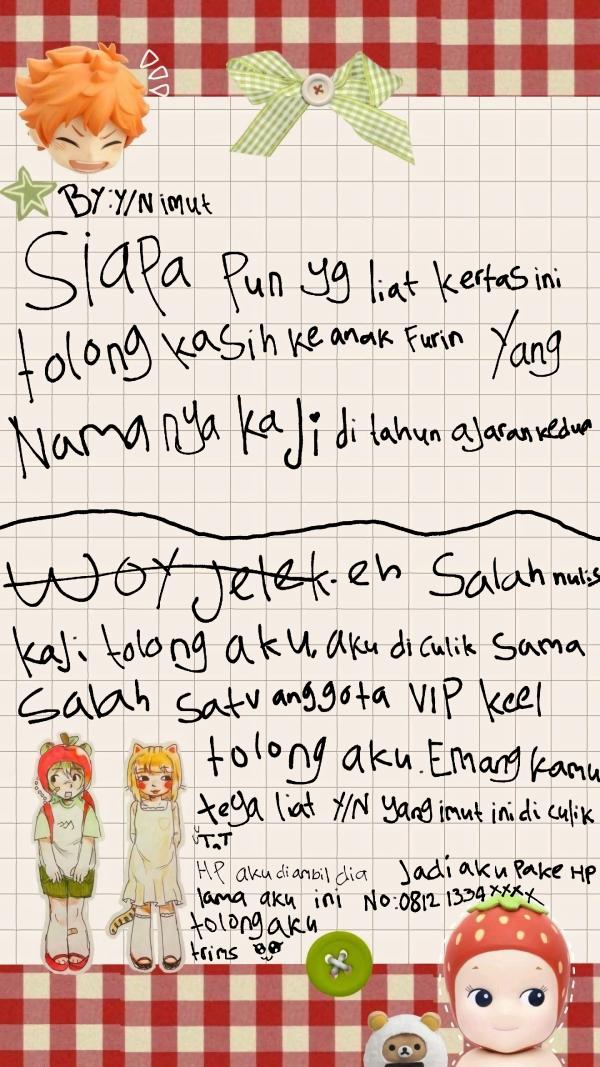 BY:Y/N imut
Siapa pun yg liat kertas ini
tolong kasih ke anak Furin Yang
Namanya kaji di tahun ajaran kedua
WOY jelek. eh Salah nulis
kaji tolong aku. aku di culik sama
Salah satu anggota VIP keel
tolong aku. Emang kamu
tega liat Y/N yang imut ini di culik
T^T
HP aku diambil dia Jadi aku Pake HP
lama aku ini No:0812 1334xxxx
tolong aku
trims